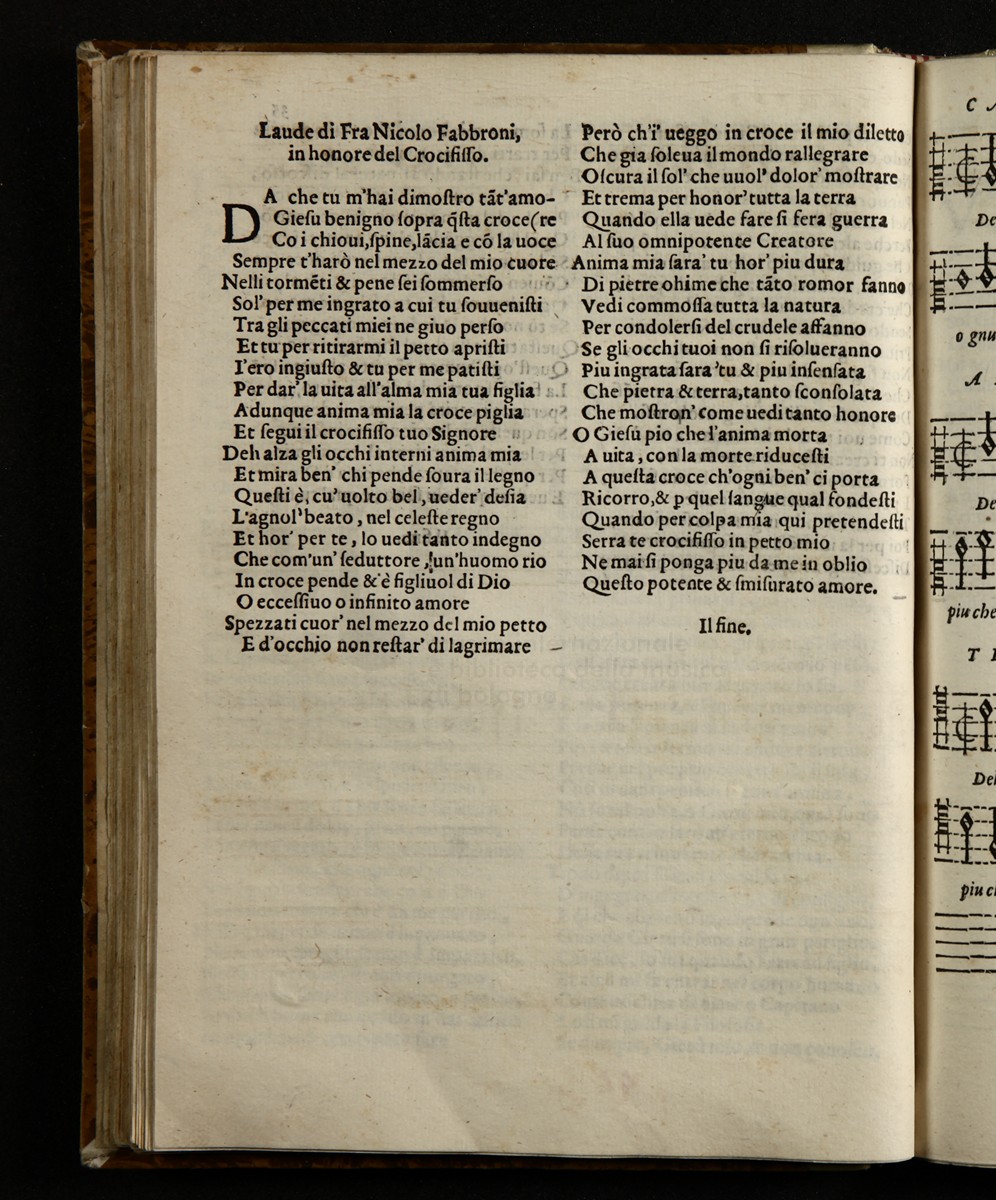 Laude di Fra Nicolo Fabbroni,
in honore del Crocifiſſo.
DA che tu m'hai dimoſtro tāt'amo-
Gieſu benigno ſopra q̄ſta croce(re
Co i chioui,ſpine,lācia e cō la uoce
Sempre t'harò nel mezzo del mio cuore
Nelli tormēti & pene ſei ſommerſo
Sol' per me ingrato a cui tu ſouueniſti
Tra gli peccati miei ne giuo perſo
Et tu per ritirarmi il petto apriſti
I'ero ingiuſto & tu per me patiſti
Per dar' la uita all'alma mia tua figlia
Adunque anima mia la croce piglia
Et ſegui il crocifiſſo tuo Signore
Deh alza gli occhi interni anima mia
Et mira ben' chi pende ſoura il legno
Queſti è, cu' uolto bel, ueder' deſia
L'agnol' beato, nel celeſte regno
Et hor' per te, lo uedi tanto indegno
Che com'un' ſeduttore, un'huomo rio
In croce pende & è figliuol di Dio
O ecceſſiuo o infinito amore
Spezzati cuor' nel mezzo del mio petto
E d'occhio non reſtar' di lagrimare
Però ch'i' ueggo in croce il mio diletto
Che gia ſoleua il mondo rallegrare
Oſcura il ſol' che uuol' dolor' moſtrare
Et trema per honor' tutta la terra
Quando ella uede fare ſi fera guerra
Al ſuo omnipotente Creatore
Anima mia ſara' tu hor' piu dura
Di pietre ohime che tāto romor fanno
Vedi commoſſa tutta la natura
Per condolerſi del crudele affanno
Se gli occhi tuoi non ſi riſolueranno
Piu ingrata ſara 'tu & piu inſenſata
Che pietra & terra,tanto ſconſolata
Che moſtron' come uedi tanto honore
O Gieſu pio che l'anima morta
A uita, con la morte riduceſti
A queſta croce ch'ogni ben' ci porta
Ricorro,& ꝑ quel ſangue qual fondeſti
Quando per colpa mia qui pretendeſti
Serra te crocifiſſo in petto mio
Ne mai ſi ponga piu da me in oblio
Queſto potente & ſmiſurato amore.
Il fine.
C A
De
o gnu
A
De
piu che
T
Del
piu c